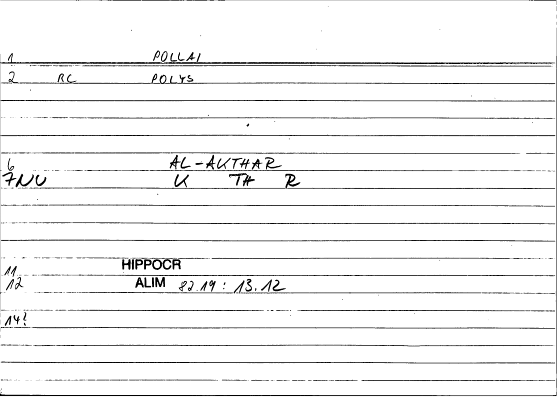 1 POLLAI
2 RC POLYS
6 AL-AKTHAR
7NU K TH R
11 HIPPOCR
12 ALIM 82.19 : 13.12
14!